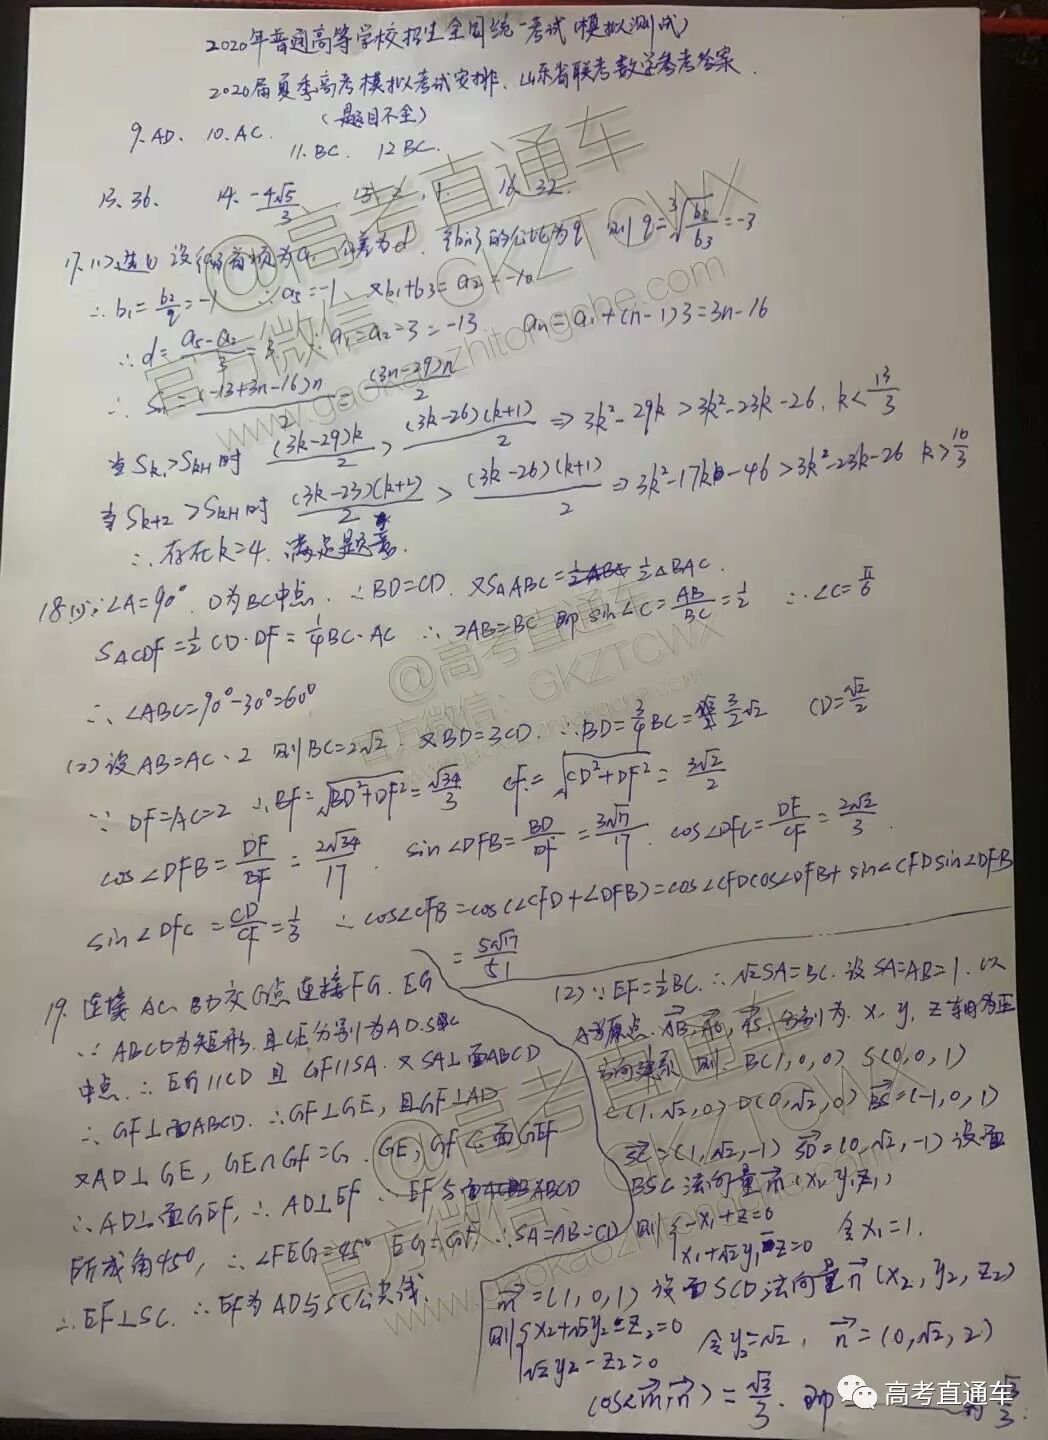 2020年普通高等学校招生全国统一考试(模拟测试)
2020届夏季高考模拟考试安排、山东省联考数学参考答案.
(题目不全)
9、AD. 10、AC.
11、BC. 12 BC.
13、36. 14、-4√5/3 16、32
17.(1)选① 设{an}首项为a1 公差为d. {bn}的公比为q 则q=³√(b5/b3)=-3
∴b1=b2/q=-1 ∴a5=-1 又b1+b3=a2=-10
∴d=(a5-a2)/3=3 ∴a1=a2-3=-13 an=a1+(n-1)3=3n-16
∴Sn=(-13+3n-16)n/2=(3n-29)n/2
当Sk>Sk+1时 (3k-29)k/2>(3k-26)(k+1)/2⇒3k²-29k>3k²-23k-26. k<13/3
当Sk+2>Sk+1时 (3k-23)(k+2)/2>(3k-26)(k+1)/2⇒3k²-17k-46>3k²-23k-26 k>10/3
∴存在k=4.满足题意.
18(1)∵∠A=90°. D为BC中点. ∴BD=CD. 又S△ABC=1/2△BAC.
S△CDF=1/2CD·DF=1/4BC·AC ∴2AB=BC 即sin∠C=AB/BC=1/2 ∴∠C=π/6
∴∠ABC=90°-30°=60°
(2)设AB=AC=2 则BC=2√2. 又BD=3CD. ∴BD=3/4BC=3/2√2 CD=√2/2
∵DF=AC=2 ∴BF=√(BD²+DF²)=√34/3 CF=√(CD²+DF²)=3√2/2
cos∠DFB=DF/BF=2√34/17. sin∠DFB=BD/DF=3√17/17. cos∠DFC=DF/CF=2√2/3.
sin∠DFC=CD/CF=1/3 ∴cos∠CFB=cos(∠CFD+∠DFB)=cos∠CFDcos∠DFB+sin∠CFDsin∠DFB
=5√17/51
19.连接AC、BD交G点连接FG.EG
∵ABCD为矩形.且E分别为AD.SBC
中点.∴EG∥CD且GF∥SA.又SA⊥面ABCD
∴GF⊥面ABCD.∴GF⊥GE,且GF⊥AD
又AD⊥GE,GE∩GF=G.GE,GF⊂面GEF
∴AD⊥面GEF,∴AD⊥EF∵EF与面ABCD
所成角45°,∴∠FEG=45° EG=GF∴SA=AB=CD
∴EF⊥SC.∴EF为AD与SC公共线.
(2)∵EF=1/2BC.∴√2SA=BC.设SA=AB=1.以
A为原点.AB,AD,AS分别为x,y,z轴为正
方向建系 则B(1,0,0) S(0,0,1)
C(1,√2,0)D(0,√2,0)BS=(-1,0,1)
SC=(1,√2,-1) SD=(0,√2,-1)设面
BSC法向量m(x1,y1,z1)
则{-x1+z=0
x1+√2y1-z=0 令x1=1.
m=(1,0,1)设面SCD法向量n(x2,y2,z2)
则{x2+√2y2-z2=0
√2y2-z2=0 令y2=√2, n=(0,√2,2)
cos<m,n>=√3/3. 即 为√3/3.
@高考直通车
官方微信:GKZTCWX
www.gaokaozhitongche.com
@高考直通车
官方微信:GKZTCWX
www.gaokaozhitongche.com
@高考直通车
官方微信:GKZTCWX
www.gaokaozhitongche.com
高考直通车